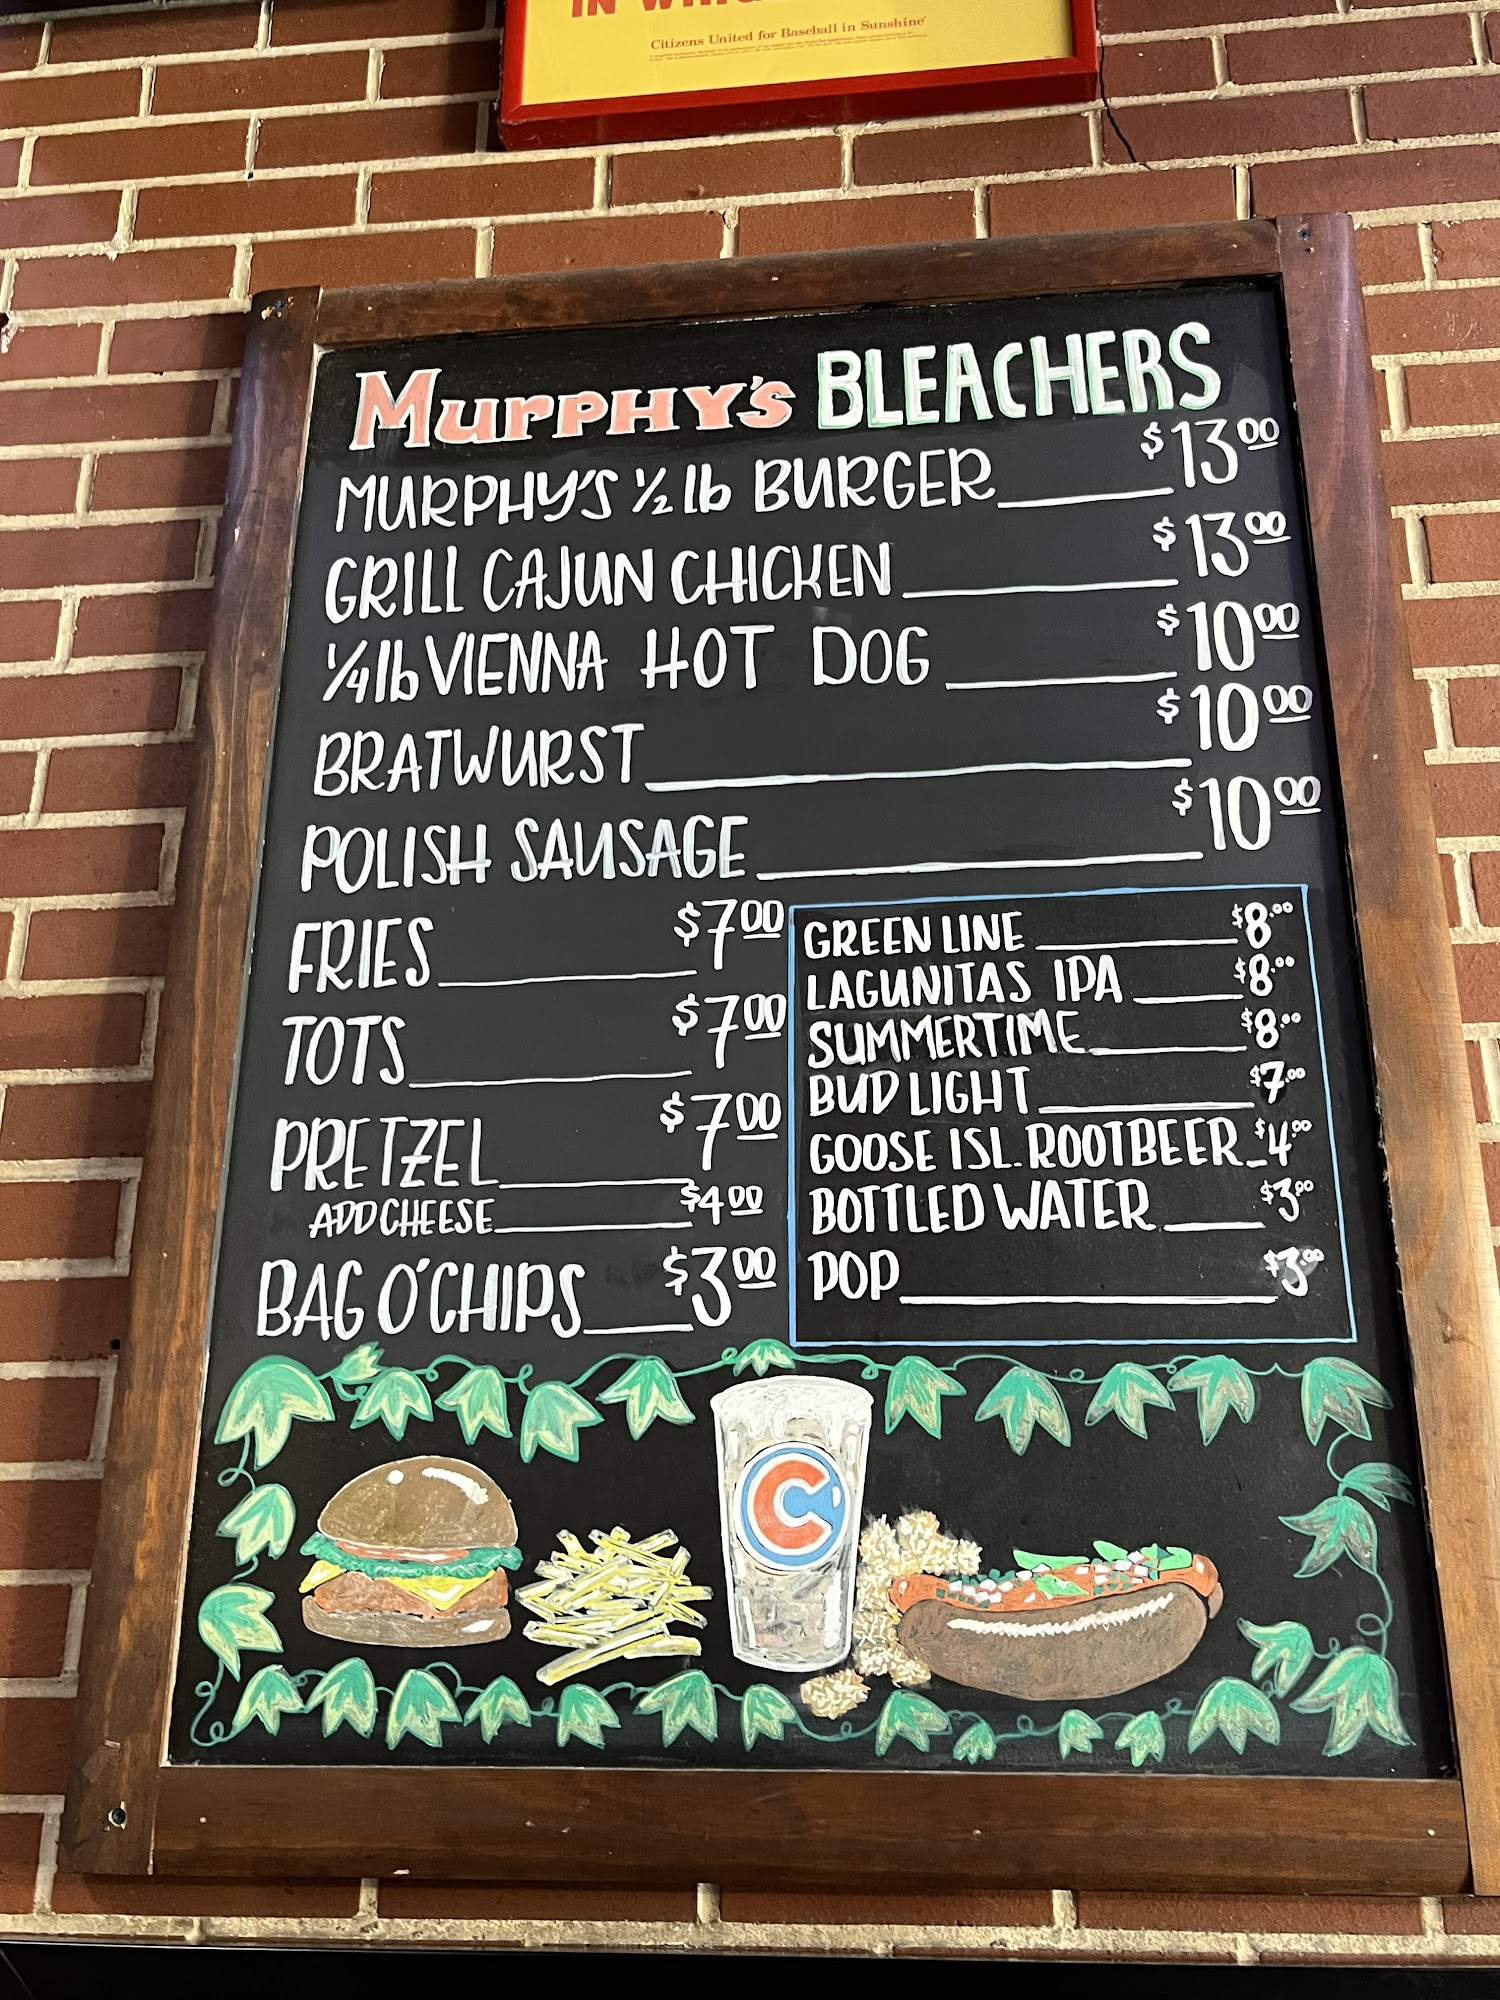 IN
Citizens United for Baseball in Sunshine
MURPHY'S BLEACHERS
MURPHY'S 1/2 lb BURGER $13.00
GRILL CAJUN CHICKEN $13.00
1/4 lb VIENNA HOT DOG $10.00
BRATWURST $10.00
POLISH SAUSAGE $10.00
FRIES $7.00
TOTS $7.00
PRETZEL $7.00
ADD CHEESE $4.00
BAG O'CHIPS $3.00
GREEN LINE $8.00
LAGUNITAS IPA $8.00
SUMMERTIME $8.00
BUD LIGHT $7.00
GOOSE ISL. ROOTBEER $4.00
BOTTLED WATER $3.00
POP $3.00
C